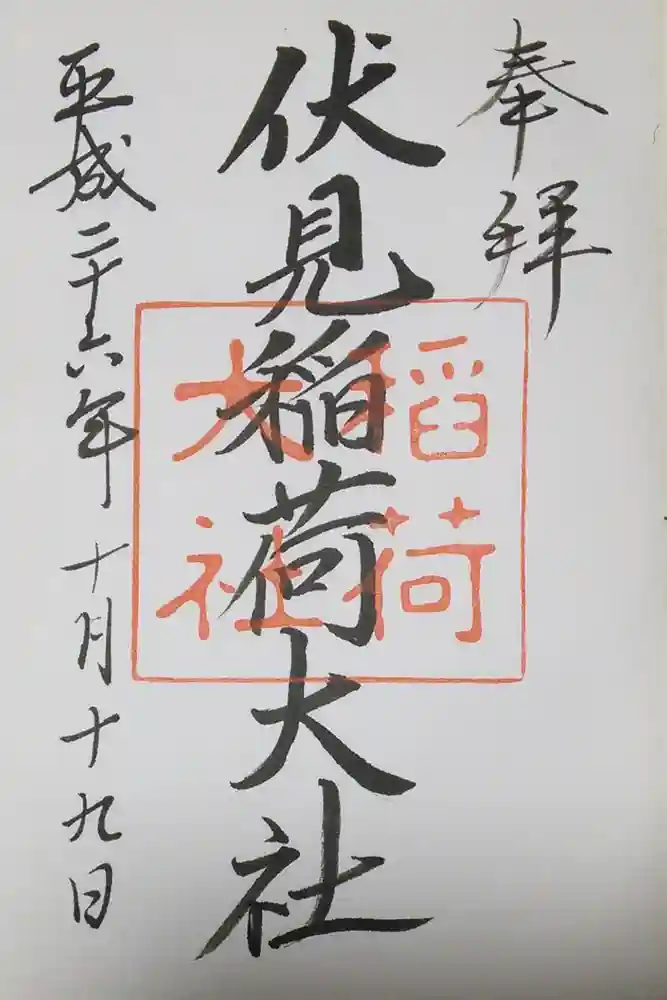 奉拜
伏見稲荷大社
稻荷
大社
平成二十六年十月十九日